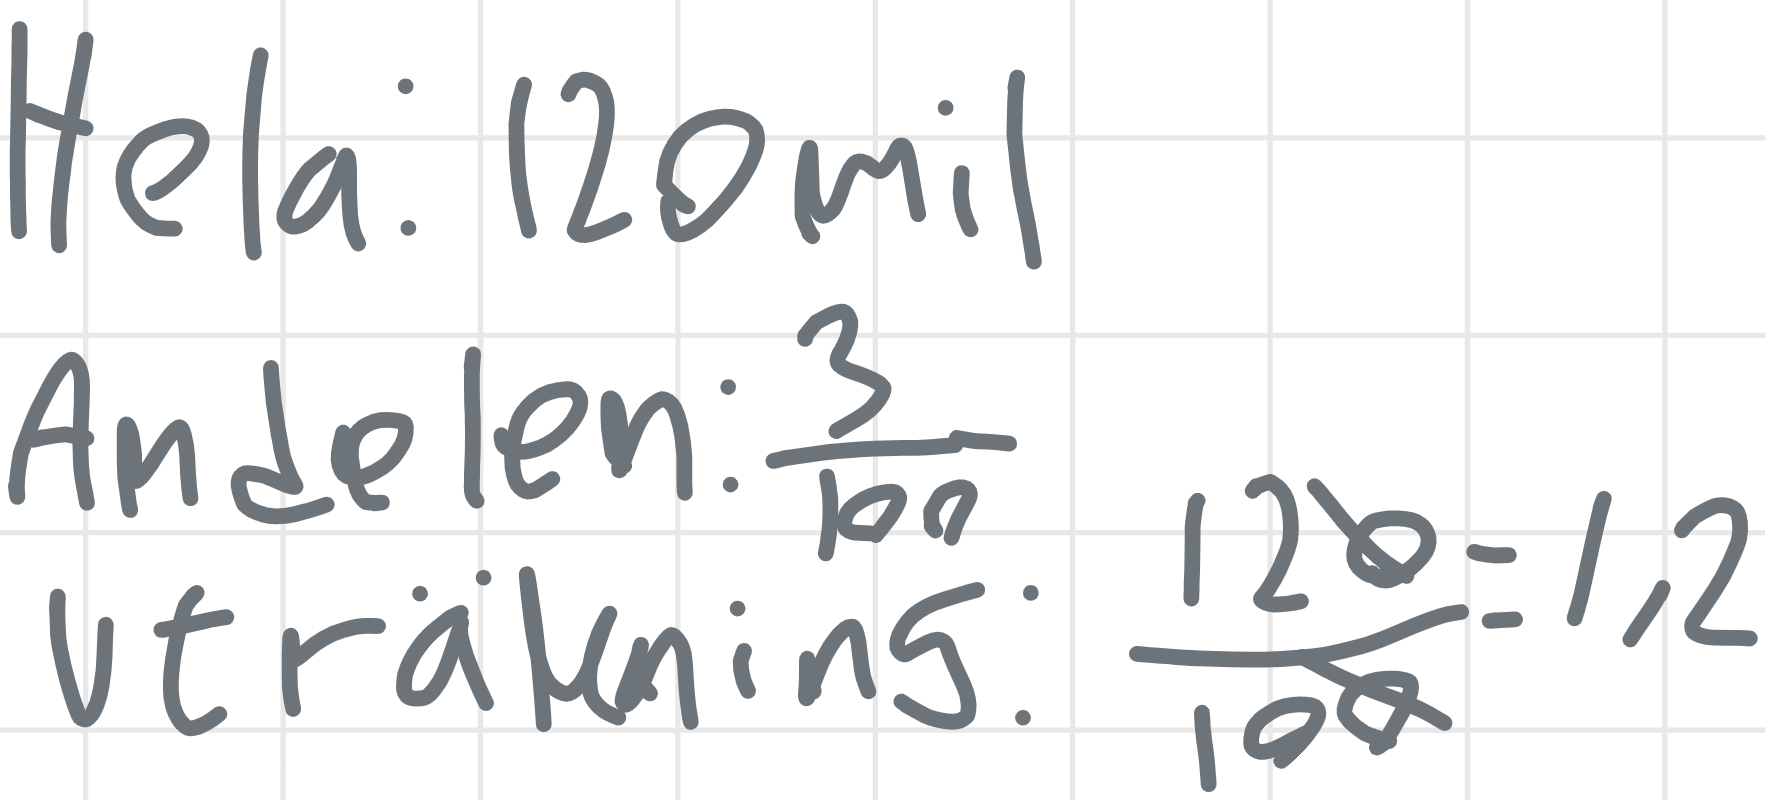 Hela: 120mil
Andelen: 3/100
Uträkning: 120/100 = 1,2